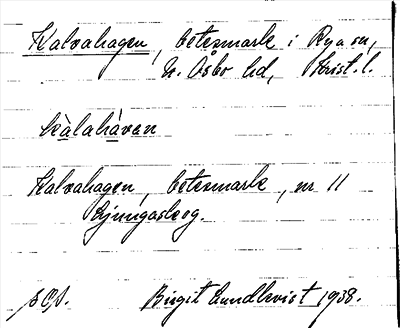 Kalvahagen, betesmark i Rya sn,
N. Åsbo hd, Krist. l.
kàlahàvan
Kalvahagen, betesmark, nr 11
Ljungaskog.
Birgit Lundkvist 1938.